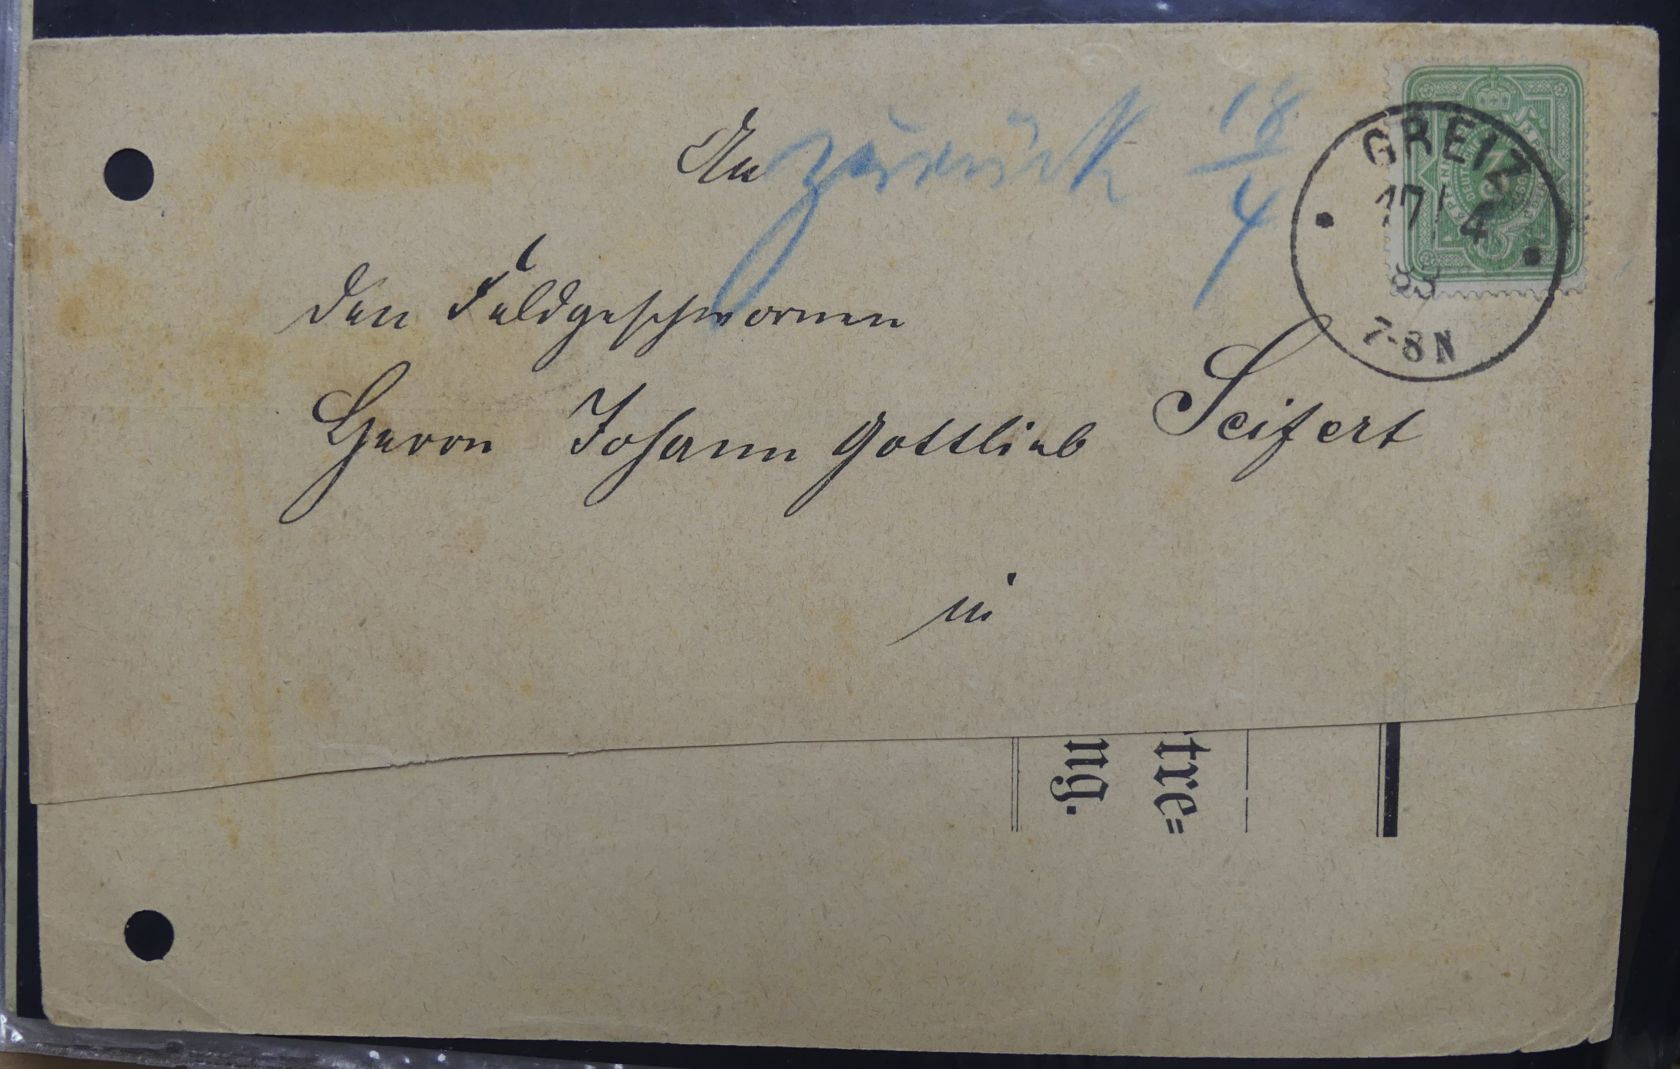 An zurück 18/4
GREIZ
17/4
7-8N
den Feldgeschwornen
Herrn Johann Gottlieb Seifert
in
tre=
ng.